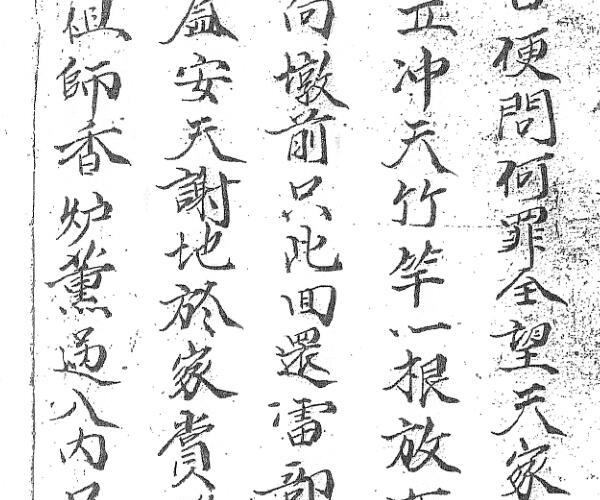 便問何罪全望天家
冲天竹竿一根放
向墩前只此回還雷部
盆安天謝地於家賞
祖師香炉薰過八内